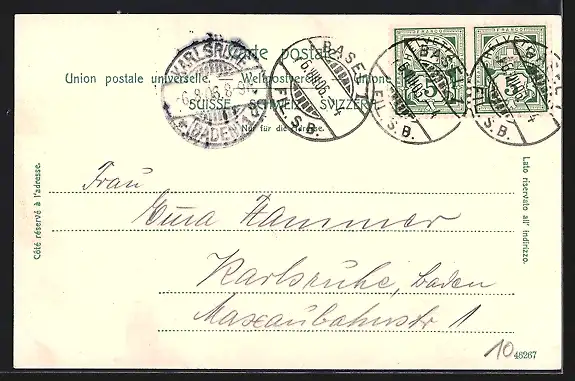 Carte postale.
Union postale universelle. Weltpostverein. Unione
SUISSE. SCHWEIZ. SVIZZERA.
Nur für die Adresse.
KARLSRUHE
6.8.06.8-9
* (BADEN) *
BASEL 1
6.VIII.06.
FIL. S.B.
HELVETIA
5
BASEL 1
6.VIII.06.
FIL. S.B.
HELVETIA
5
BASEL 1
FIL. S.B.
Côté réservé à l'adresse.
Lato riservato all' indirizzo.
Frau
Hammer
Karlsruhe, Baden
Maxaubahnstr 1
10
46267